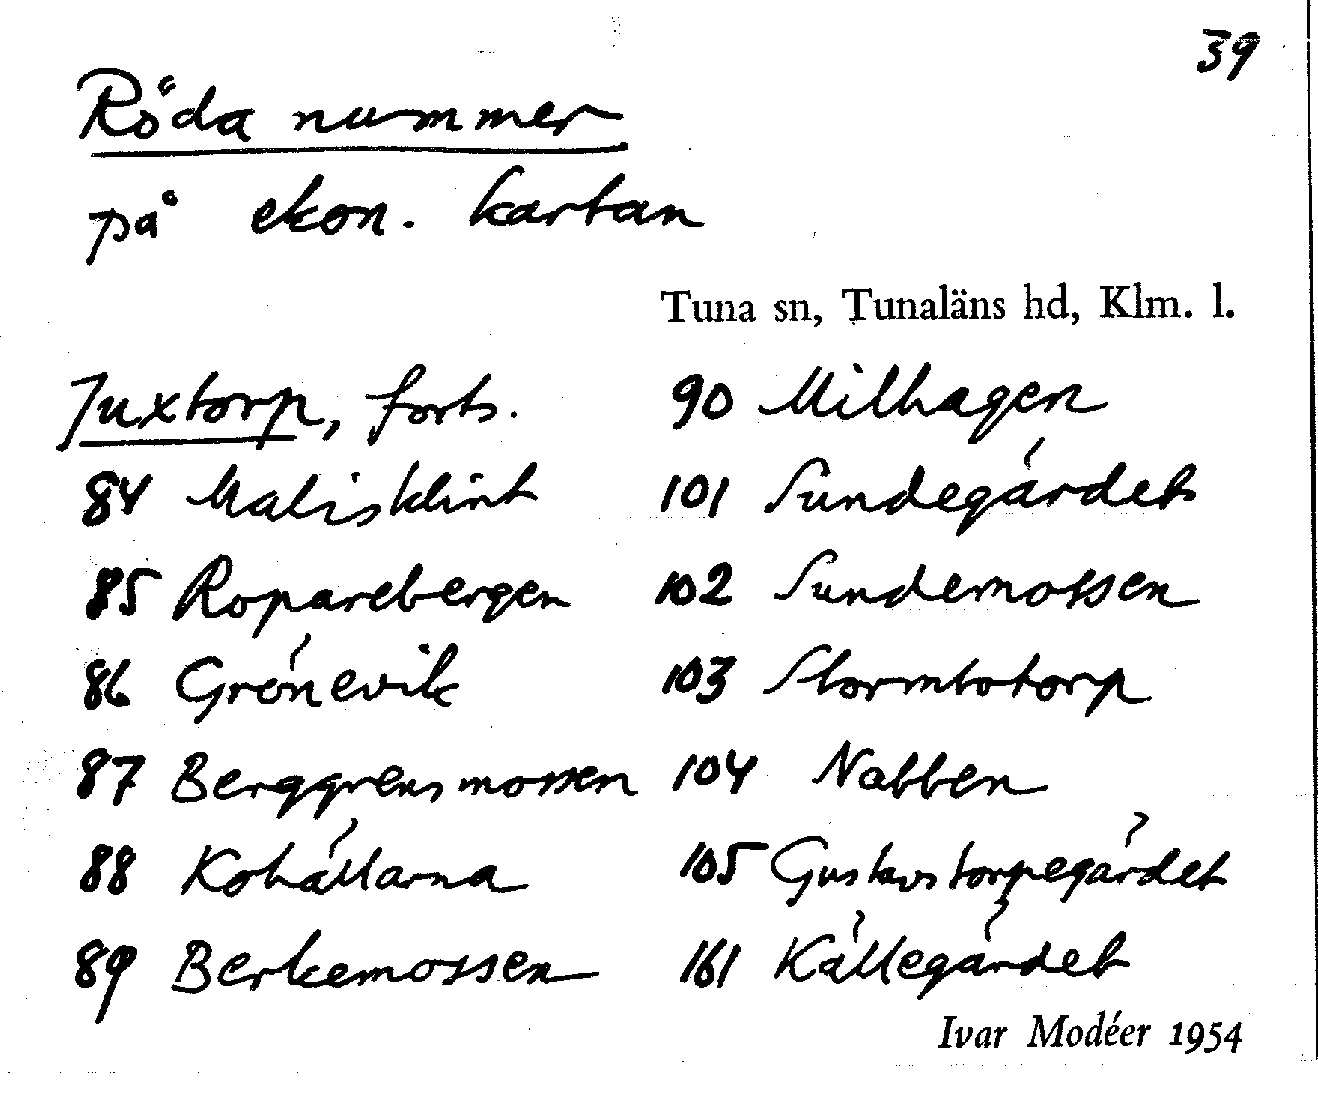 39
Röda nummer
på ekon. kartan
Tuna sn, Tunaläns hd, Klm. l.
Juxtorp, forts.
84 Malisklint
85 Roparebergen
86 Grönevik
87 Berggrensmossen
88 Kohällarna
89 Berkemossen
90 Milhagen
101 Sundegärdet
102 Sundemossen
103 Stormtotorp
104 Nabben
105 Gustavstorpegärdet
161 Källegärdet
Ivar Modéer 1954